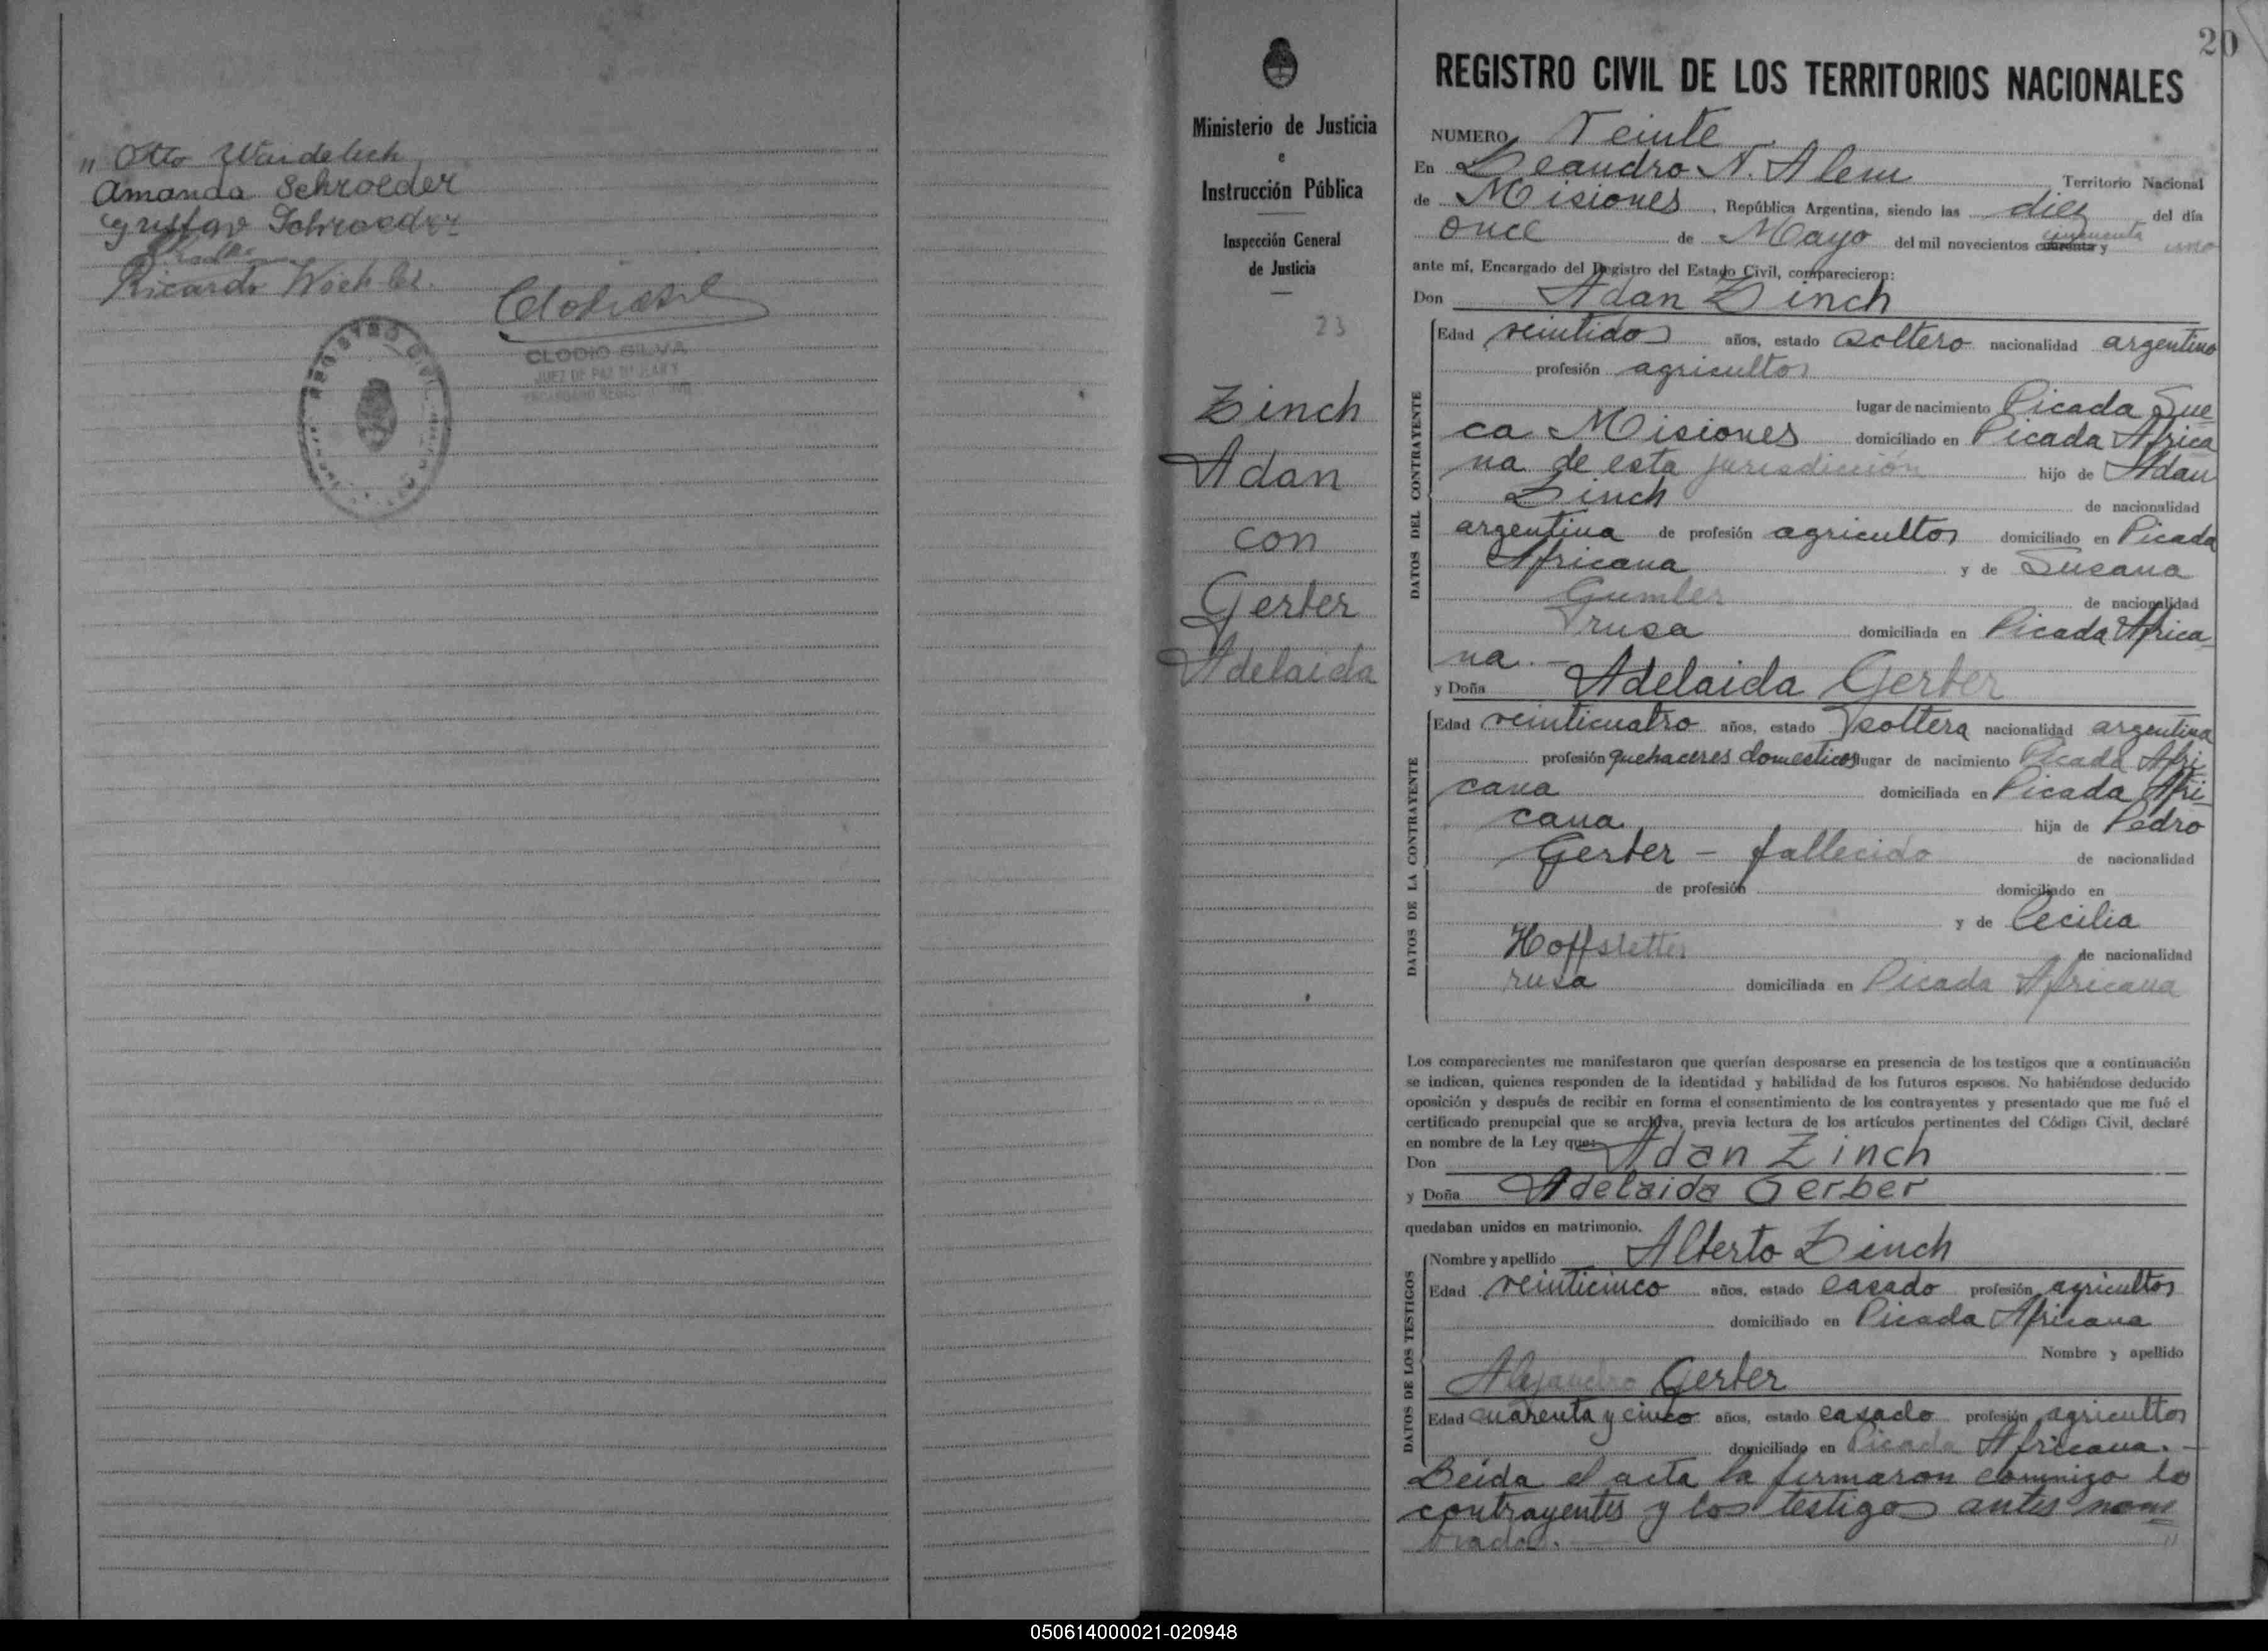 " Otto Wardelich
Amanda Schroeder
Gustav Schroeder
Ricardo
CLODIO SILVA
JUEZ DE PAZ
REGISTRO CIVIL
20
Ministerio de Justicia
e
Instrucción Pública
Inspección General
de Justicia
23
Zinch
Adan
con
Gerber
Adelaida
REGISTRO CIVIL DE LOS TERRITORIOS NACIONALES
NUMERO Veinte
En Leandro N. Alem Territorio Nacional
de Misiones, República Argentina, siendo las diez del día
once de Mayo del mil novecientos cuarenta y cincuenta uno
ante mí, Encargado del Registro del Estado Civil, comparecieron:
Don Adan Zinch
DATOS DEL CONTRAYENTE
Edad veintidos años, estado soltero nacionalidad argentino
profesión agricultor
lugar de nacimiento Picada Sue
ca Misiones domiciliado en Picada Africa
na de esta jurisdicción hijo de Adan
Zinch de nacionalidad
argentina de profesión agricultor domiciliado en Picada
Africana y de Susana
Gumber de nacionalidad
rusa domiciliada en Picada Africa
na.-
y Doña Adelaida Gerber
DATOS DE LA CONTRAYENTE
Edad veinticuatro años, estado soltera nacionalidad argentina
profesión quehaceres domesticos lugar de nacimiento Picada Afri
cana domiciliada en Picada Afri
cana hija de Pedro
Gerber - fallecido de nacionalidad
de profesión domiciliado en
y de Cecilia
Hoffstetter de nacionalidad
rusa domiciliada en Picada Africana
Los comparecientes me manifestaron que querían desposarse en presencia de los testigos que a continuación
se indican, quienes responden de la identidad y habilidad de los futuros esposos. No habiéndose deducido
oposición y después de recibir en forma el consentimiento de los contrayentes y presentado que me fué el
certificado prenupcial que se archiva, previa lectura de los artículos pertinentes del Código Civil, declaré
en nombre de la Ley que:
Don Adan Zinch
y Doña Adelaida Gerber
quedaban unidos en matrimonio.
DATOS DE LOS TESTIGOS
Nombre y apellido Alberto Zinch
Edad veinticinco años, estado casado profesión agricultor
domiciliado en Picada Africana
Nombre y apellido
Alejandro Gerber
Edad cuarenta y cinco años, estado casado profesión agricultor
domiciliado en Picada Africana.-
Leida el acta la firmaron conmigo los
contrayentes y los testigos antes nom
brados.- "
050614000021-020948